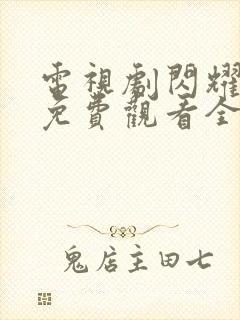 電視劇閃耀
免費觀看全
鬼店主田七